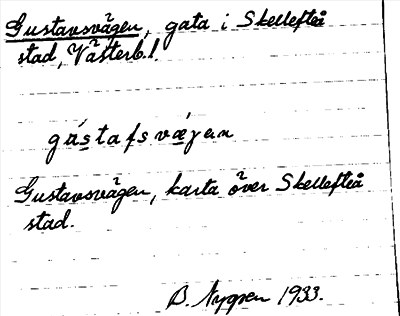 Gustavsvägen, gata i Skellefteå
stad, Västerb. l.
gústafsvæ̀gen
Gustavsvägen, karta över Skellefteå
stad.
B. Nygren 1933.